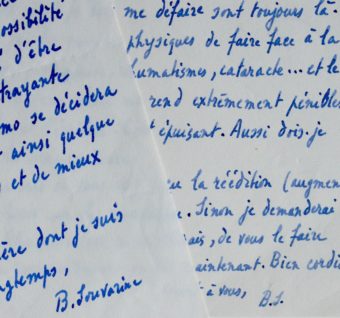 possibilité
d'être
trayante
mo se décidera
ainsi quelque
et de mieux
ère dont je suis
ngtemps,
B. Souvarine
me défaire sont toujours là.
physiques de faire face à la
humatismes, cataracte... et le
rend extrêmement pénible
épuisant. Aussi dois-je
la réédition (augmen
. Sinon je demanderai
ais, de vous le faire
aintenant. Bien cordi
t à vous, B.S.